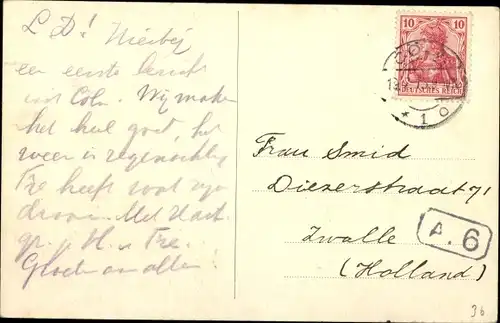 L D! Hierbij
een eerste bericht
uit Cöln. Wij maken
het heel goed, het
weer is regenachtig
heeft
Met Hart.
gr. H.
Groeten aan allen.
10 10
DEUTSCHES REICH
CÖLN
* 1
Frau Smid
Diezerstraat 71
Zwolle
(Holland)
A. 6
36